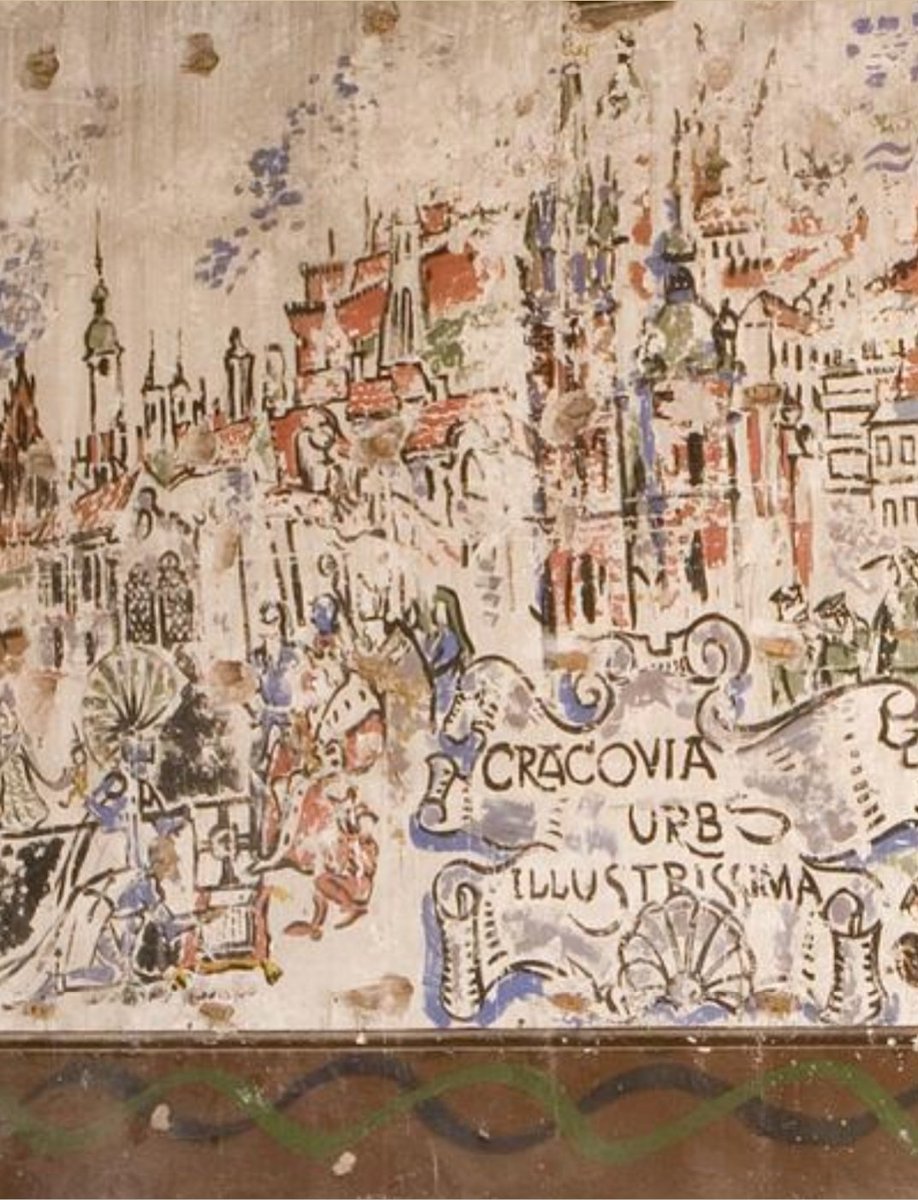 CRACOVIA
URBS
ILLUSTRISSIMA